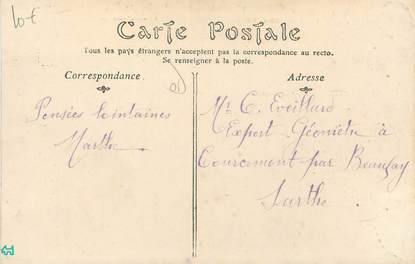 10€
Carte Postale
Tous les pays étrangers n'acceptent pas la correspondance au recto.
Se renseigner à la poste.
Correspondance.
Adresse
Pensées lointaines
Marthe
Mr C. Eveillard
Expert-Géomètre à
Courcemont par Beaufay
Sarthe